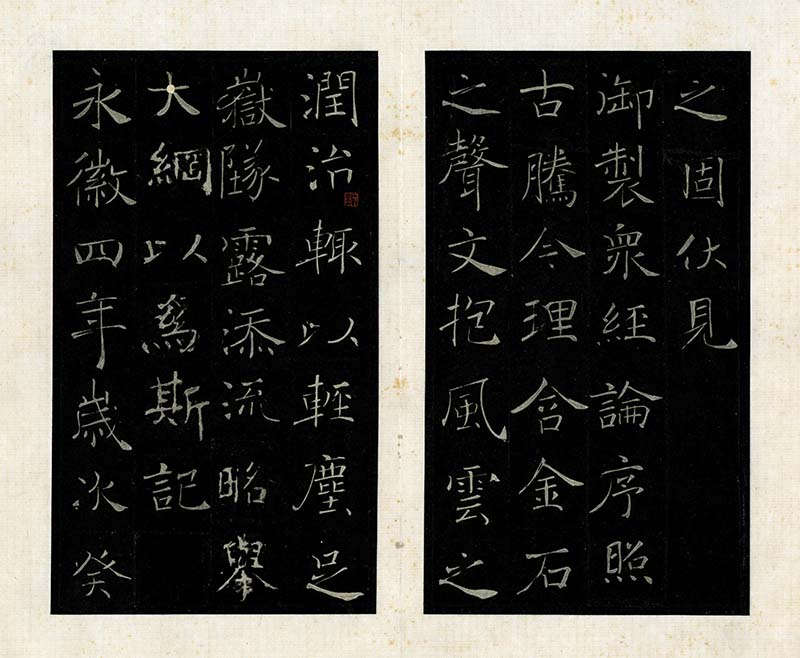 之固伏見
御製衆經論序照
古騰今理含金石
之聲文抱風雲之
潤治輙以輕塵足
嶽隊露添流昭舉
大綱以爲斯記
永徽四年歲次癸